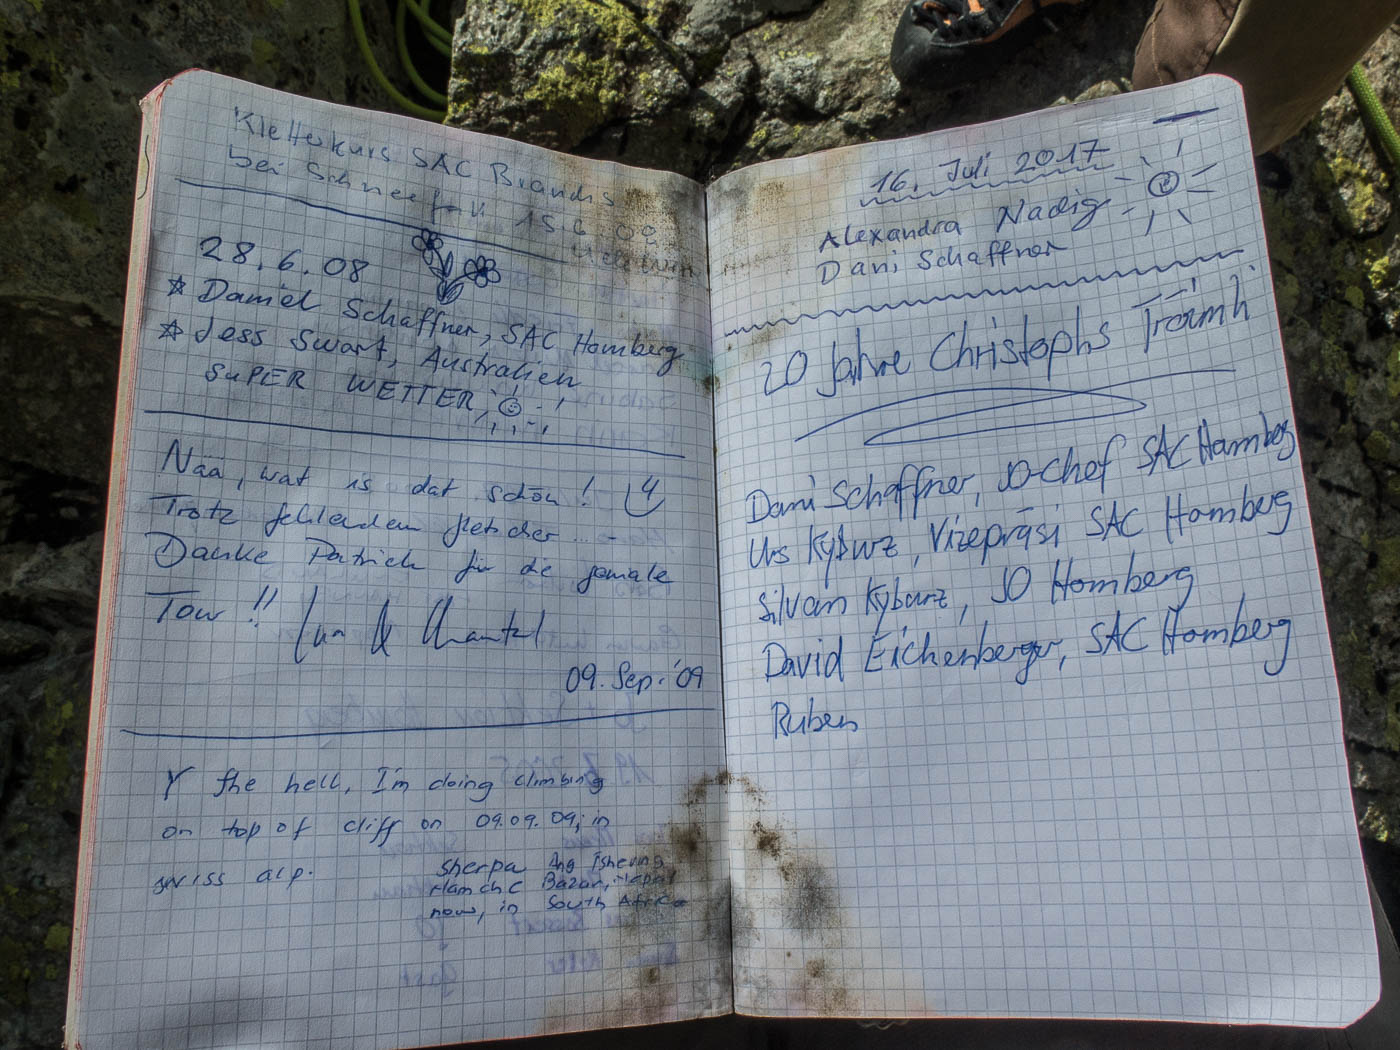 Kletterkurs SAC Brandis
bei Schneefall 15.6.08
28.6.08
Daniel Schaffner, SAC Homberg
Jess Swart, Australien
SUPER WETTER,
Nää, wat is dat schön!
Trotz fehlendem Gletscher ...
Danke Patrick für die geniale
Tour!!
Chantal
09. Sep. '09
Y the hell, I'm doing climbing
on top of cliff on 09.09.09, in
swiss alp.
Sherpa Ang Tshering
Namche Bazar, Nepal
now, in South Africa
16. Juli 2017
Alexandra Nadig
Dani Schaffner
20 Jahre Christophs Träumli
Dani Schaffner, JO-Chef SAC Homberg
Urs Kyburz, Vizepräsi SAC Homberg
Silvan Kyburz, JO Homberg
David Eichenberger, SAC Homberg
Ruben